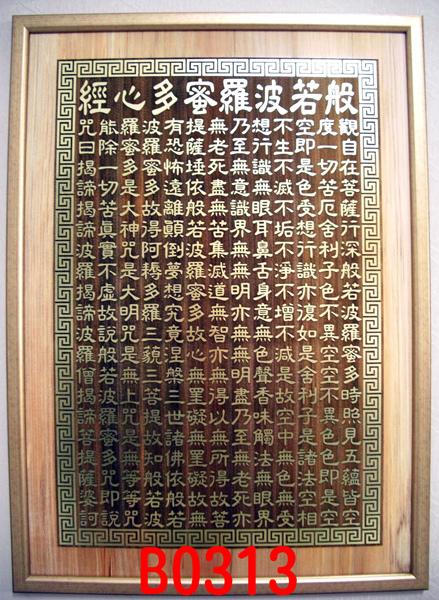 般若波羅蜜多心經
觀自在菩薩行深般若波羅蜜多時照見五蘊皆空
度一切苦厄舍利子色不異空空不異色色即是空
空即是色受想行識亦復如是舍利子是諸法空相
不生不滅不垢不淨不增不減是故空中無色無受
想行識無眼耳鼻舌身意無色聲香味觸法無眼界
乃至無意識界無無明亦無無明盡乃至無老死亦
無老死盡無苦集滅道無智亦無得以無所得故菩
提薩埵依般若波羅蜜多故心無罣礙無罣礙故無
有恐怖遠離顛倒夢想究竟涅槃三世諸佛依般若
波羅蜜多故得阿耨多羅三藐三菩提故知般若波
羅蜜多是大神咒是大明咒是無上咒是無等等咒
能除一切苦真實不虛故說般若波羅蜜多咒即說
咒曰揭諦揭諦波羅揭諦波羅僧揭諦菩提薩婆訶
B0313